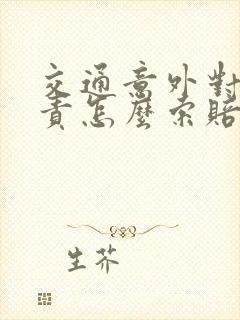 交通意外對
責怎麼索賠
生芥